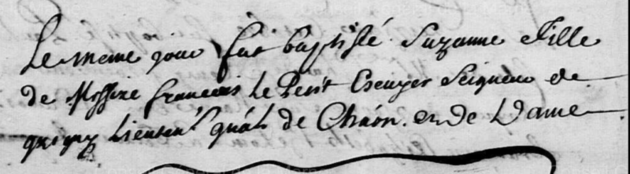 Le meme jour fut baptisé Suzanne Fille
de Messire francois Le Petit Escuyer Seigneur de
Lieuten^t de Chaon. et de Dame